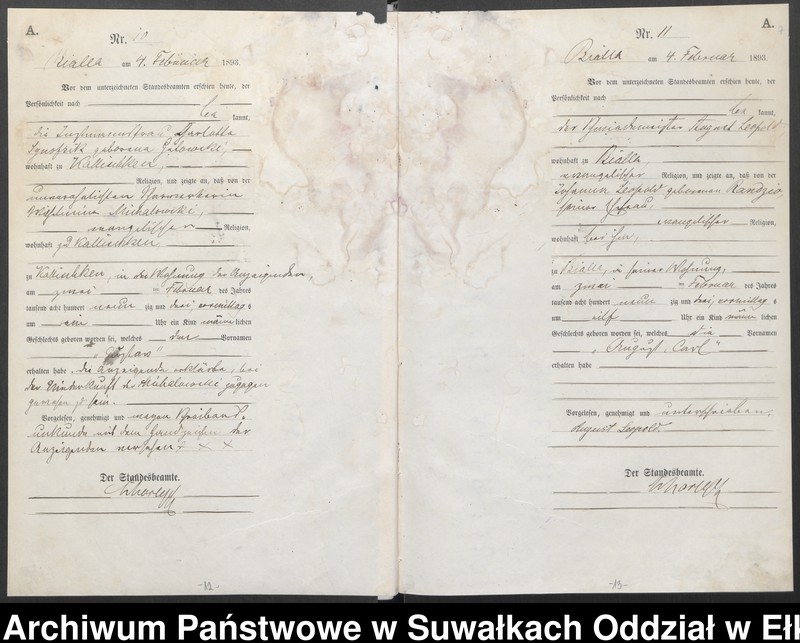 A.
Nr. 10
Bialla am 4. Februar 1893.
Vor dem unterzeichneten Standesbeamten erschien heute, der
Persönlichkeit nach
be kannt,
die Instmannsfrau Charlotte
geborene
wohnhaft zu Kallischken,
Religion, und zeigte an, daß von der
unverehelichten
Wilhelmine Michalowski,
evangelischer Religion,
wohnhaft zu Kallischken,
zu Kallischken, in der Wohnung der Anzeigenden,
am zwei = Februar des Jahres
tausend acht hundert neun zig und drei, vormittags
um ein Uhr ein Kind männ lichen
Geschlechts geboren worden sei, welches den Vornamen
„Gustav“
erhalten habe. Die Anzeigende erklärte, bei
der Niederkunft der Michalowski zugegen
gewesen zu sein.
Vorgelesen, genehmigt und wegen Schreibens-
unkunde mit dem Handzeichen der
Anzeigenden versehen. + × ×
Der Standesbeamte.
-12-
A.
Nr. 11
Bialla am 4. Februar 1893.
Vor dem unterzeichneten Standesbeamten erschien heute, der
Persönlichkeit nach
be kannt,
der Schneidermeister August Leopold
wohnhaft zu Bialla,
evangelischer Religion, und zeigte an, daß von der
Johanna Leopold geborenen Kandzio
seiner Ehefrau,
evangelischer Religion,
wohnhaft bei ihm,
zu Bialla, in seiner Wohnung,
am zwei = Februar des Jahres
tausend acht hundert neun zig und drei, vormittags
um elf Uhr ein Kind männ lichen
Geschlechts geboren worden sei, welches die Vornamen
„August Carl“
erhalten habe
Vorgelesen, genehmigt und unterschrieben.
August Leopold.
Der Standesbeamte.
-13-
Archiwum Państwowe w Suwałkach Oddział w Eł